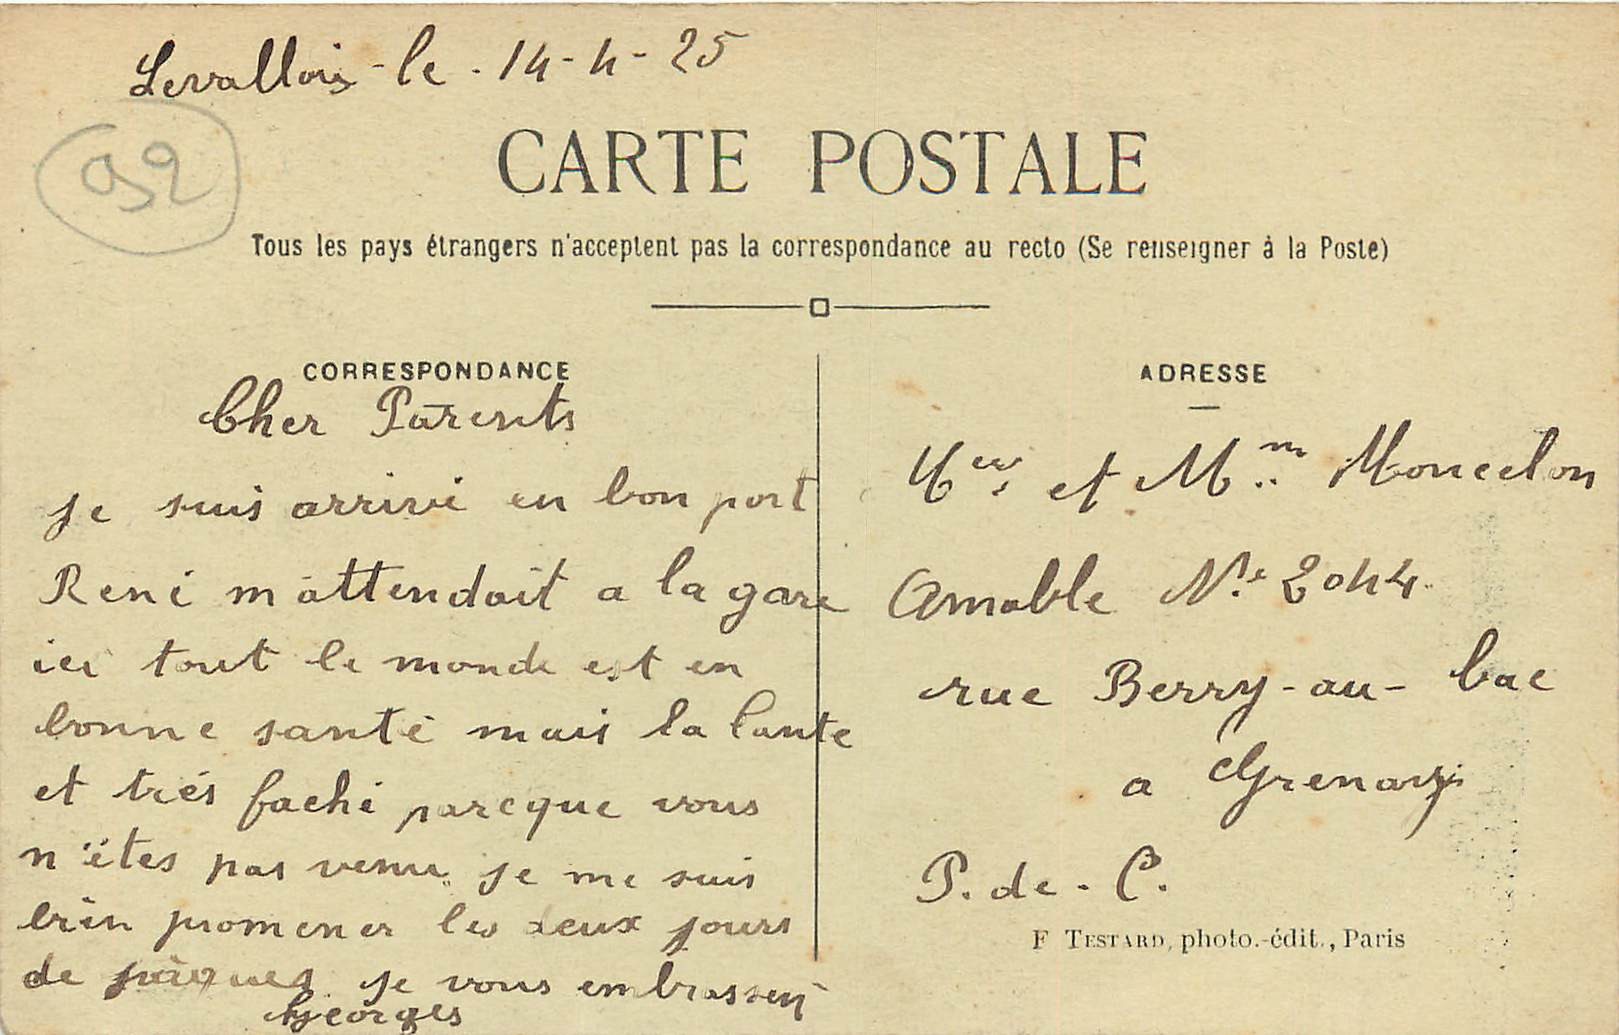 Levallois - le - 14 - 4 - 25
92
CARTE POSTALE
Tous les pays étrangers n'acceptent pas la correspondance au recto (Se renseigner à la Poste)
CORRESPONDANCE
Cher Parents
je suis arrivé en bon port
René m'attendait a la gare
ici tout le monde est en
bonne santé mais la tante
et trés faché parcque vous
n'étes pas venu je me suis
bien promener les deux jours
de pâques je vous embrassent
Georges
ADRESSE
et M.
Amable N° 2044
rue Berry-au-bac
a Grenay
P. de. C.
F TESTARD, photo.-édit., Paris